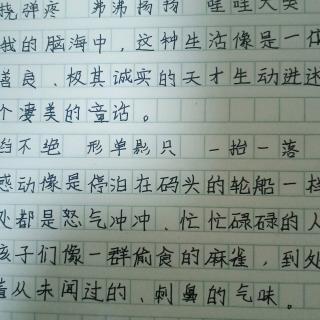 弹疼 沸沸扬扬 哇哇大哭
我的脑海中，这种生活像是一位
善良、极其诚实的天才生动讲述
个凄美的童话。
不绝 形单影只 一抬一落
感动像是停泊在码头的轮船一样
处都是怒气冲冲、忙忙碌碌的人
孩子们像一群偷食的麻雀，到处
着从未闻过的、刺鼻的气味。